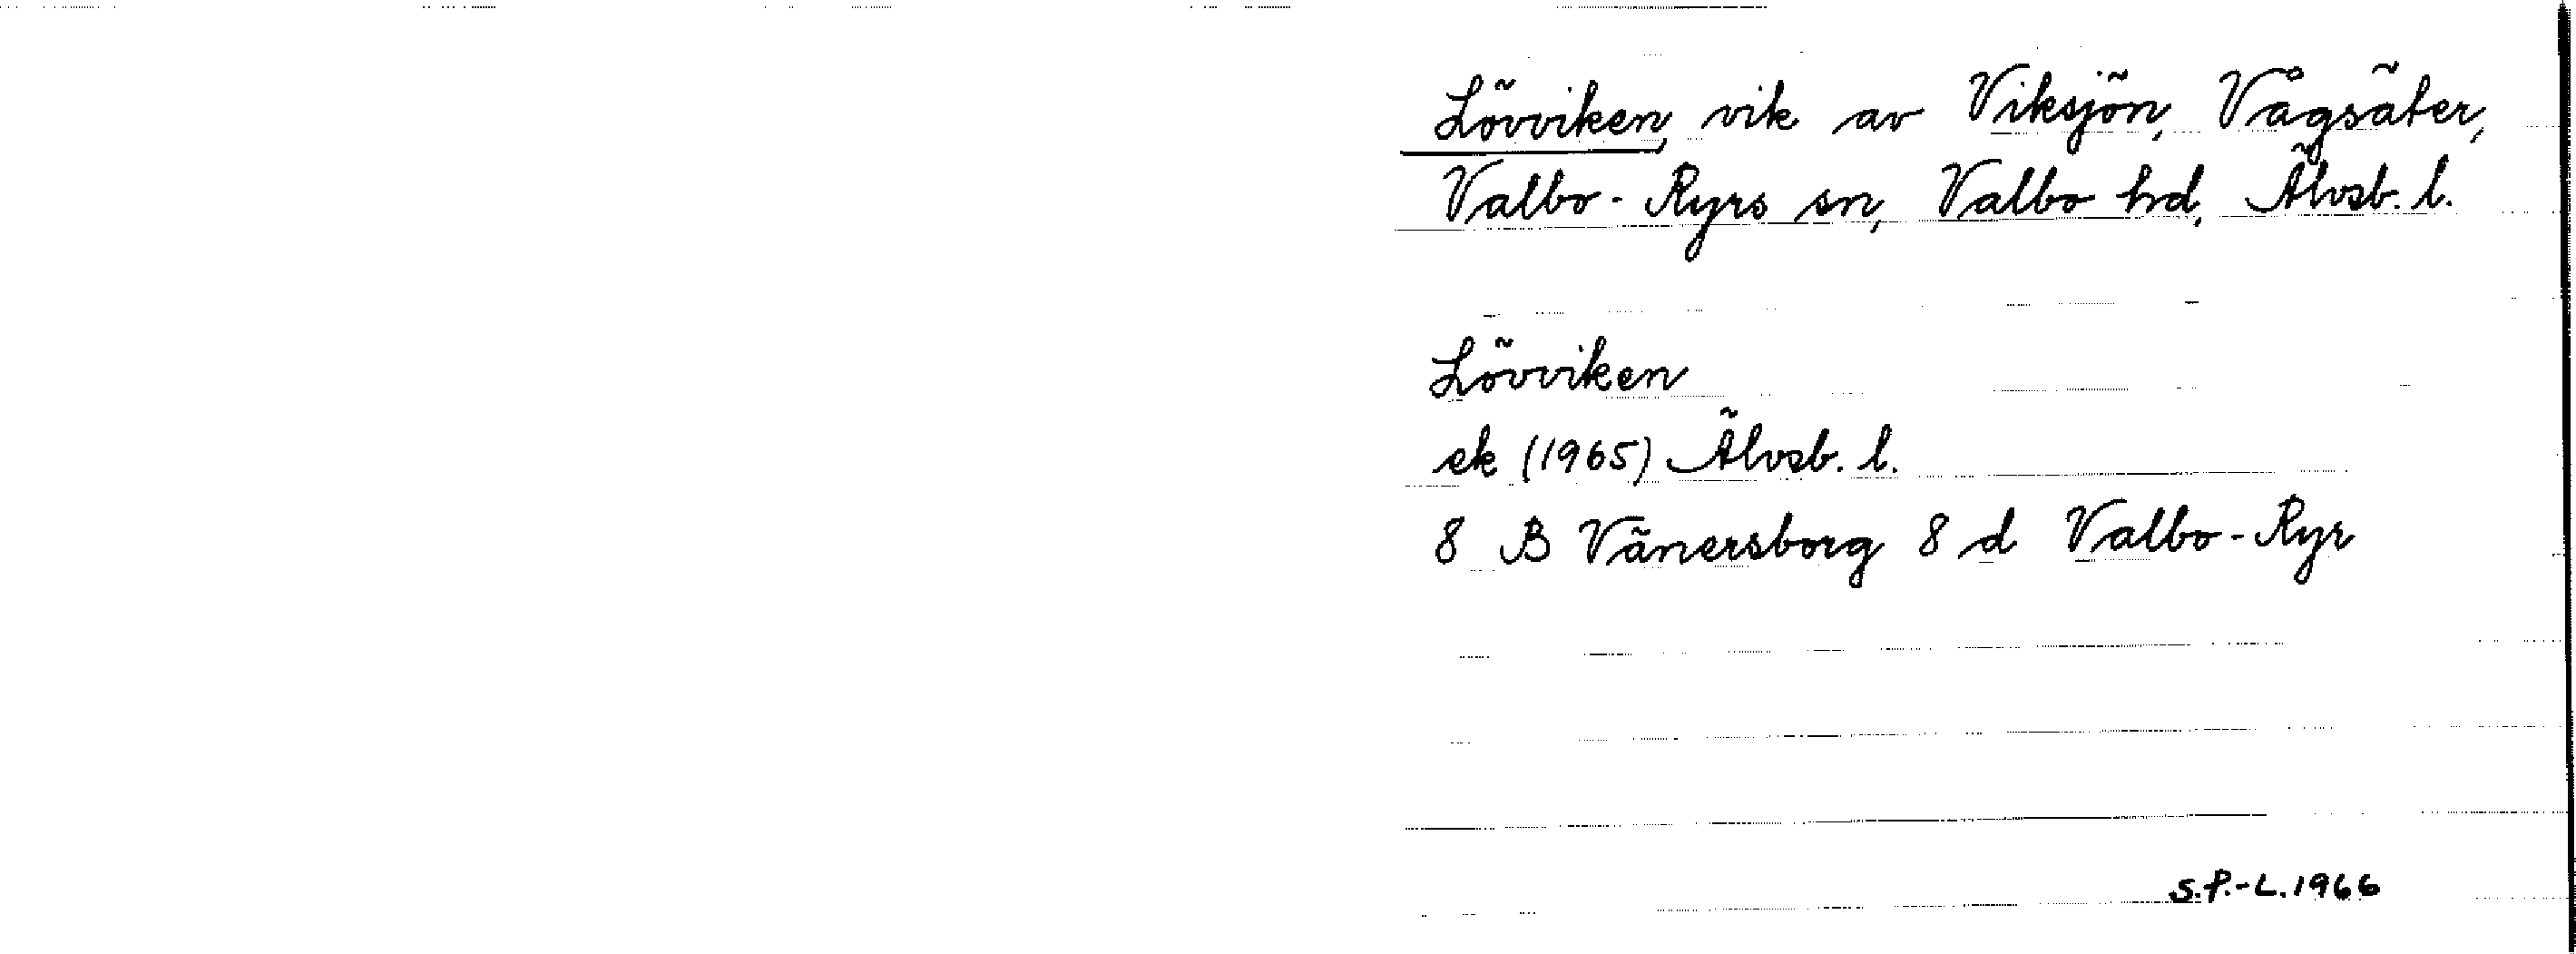 Lövviken, vik av Viksjön, Vågsäter,
Valbo-Ryrs sn, Valbo hd, Älvsb. l.
Lövviken
ek (1965) Älvsb. l.
8 B Vänersborg 8 d Valbo-Ryr
S.P.-L. 1966